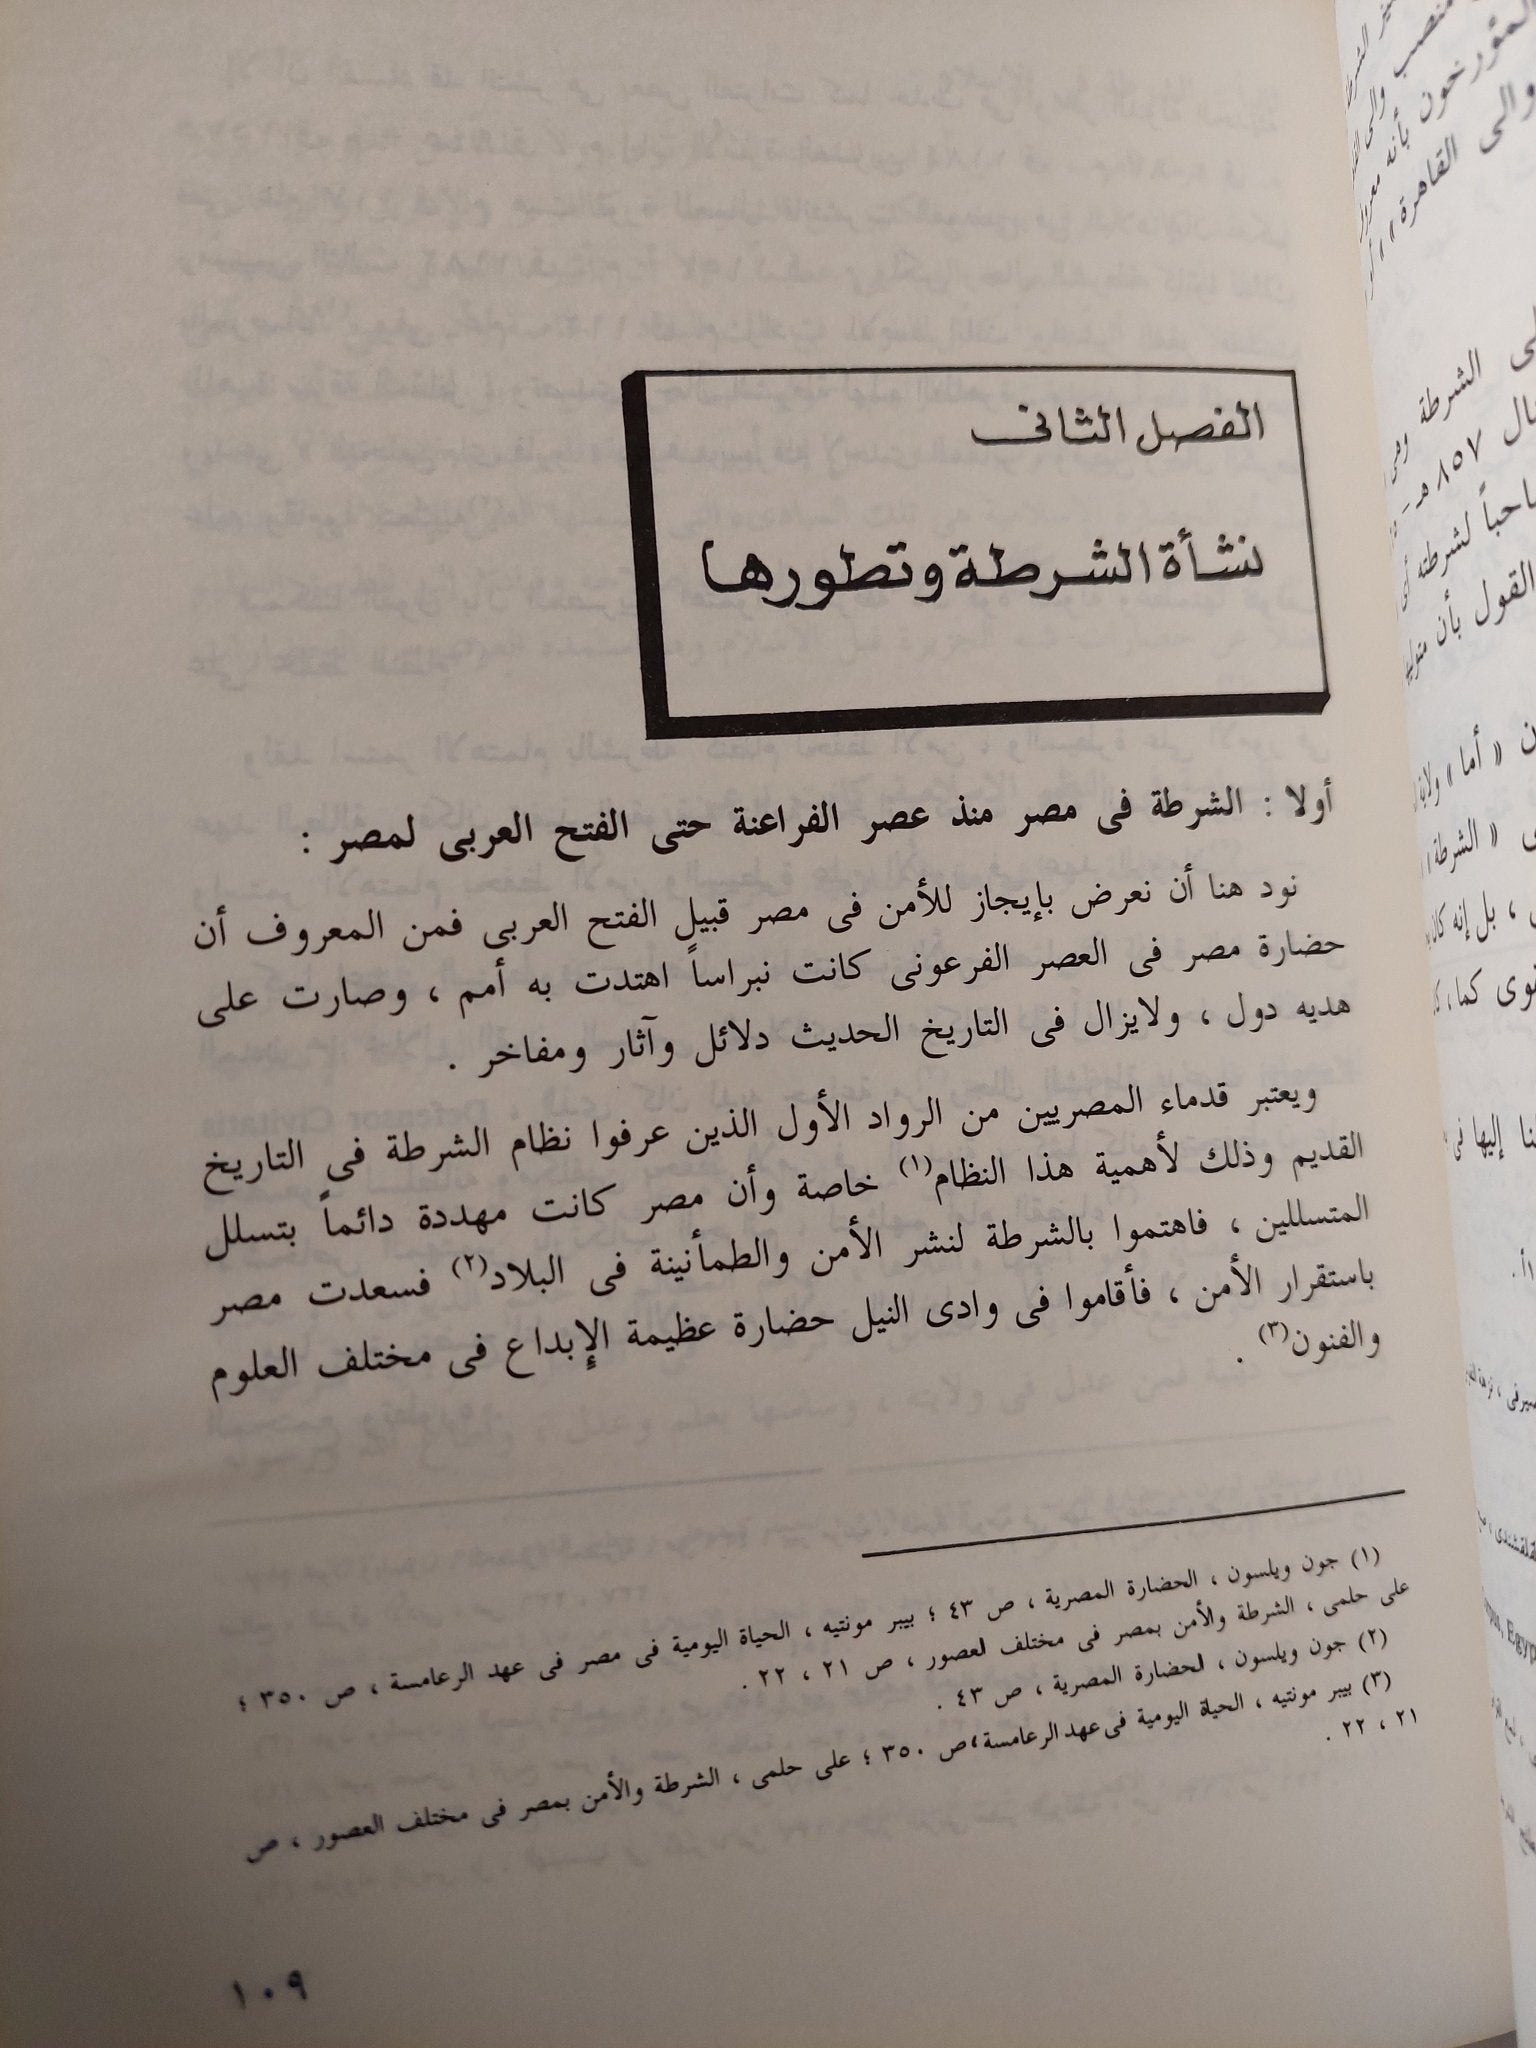 الفصل الثانى
نشأة الشرطة وتطورها
أولا : الشرطة فى مصر منذ عصر الفراعنة حتى الفتح العربى لمصر :
نود هنا أن نعرض بإيجاز للأمن فى مصر قبيل الفتح العربى فمن المعروف أن
حضارة مصر فى العصر الفرعونى كانت نبراساً اهتدت به أمم ، وصارت على
هديه دول ، ولايزال فى التاريخ الحديث دلائل وآثار ومفاخر .
ويعتبر قدماء المصريين من الرواد الأول الذين عرفوا نظام الشرطة فى التاريخ
القديم وذلك لأهمية هذا النظام(١) خاصة وأن مصر كانت مهددة دائماً بتسلل
المتسللين ، فاهتموا بالشرطة لنشر الأمن والطمأنينة فى البلاد(٢) فسعدت مصر
باستقرار الأمن ، فأقاموا فى وادى النيل حضارة عظيمة الإبداع فى مختلف العلوم
والفنون(٣) .
(١) جون ويلسون ، الحضارة المصرية ، ص ٤٣ ؛ بيبر مونتيه ، الحياة اليومية فى مصر فى عهد الرعامسة ، ص ٣٥٠ ؛
على حلمى ، الشرطة والأمن بمصر فى مختلف لعصور ، ص ٢١ ، ٢٢ .
(٢) جون ويلسون ، لحضارة المصرية ، ص ٤٣ .
(٣) بيبر مونتيه ، الحياة اليومية فى عهد الرعامسة ، ص ٣٥٠ ؛ على حلمى ، الشرطة والأمن بمصر فى مختلف العصور ، ص
٢١ ، ٢٢ .
١٠٩
المؤرخون بأنه
والى القاهرة
الشرطة
٨٥٧ هـ -
لشرطته
القول بأن
« أما » ولاية
« الشرطة
، بل إنه كان
كما ،
إليها فى